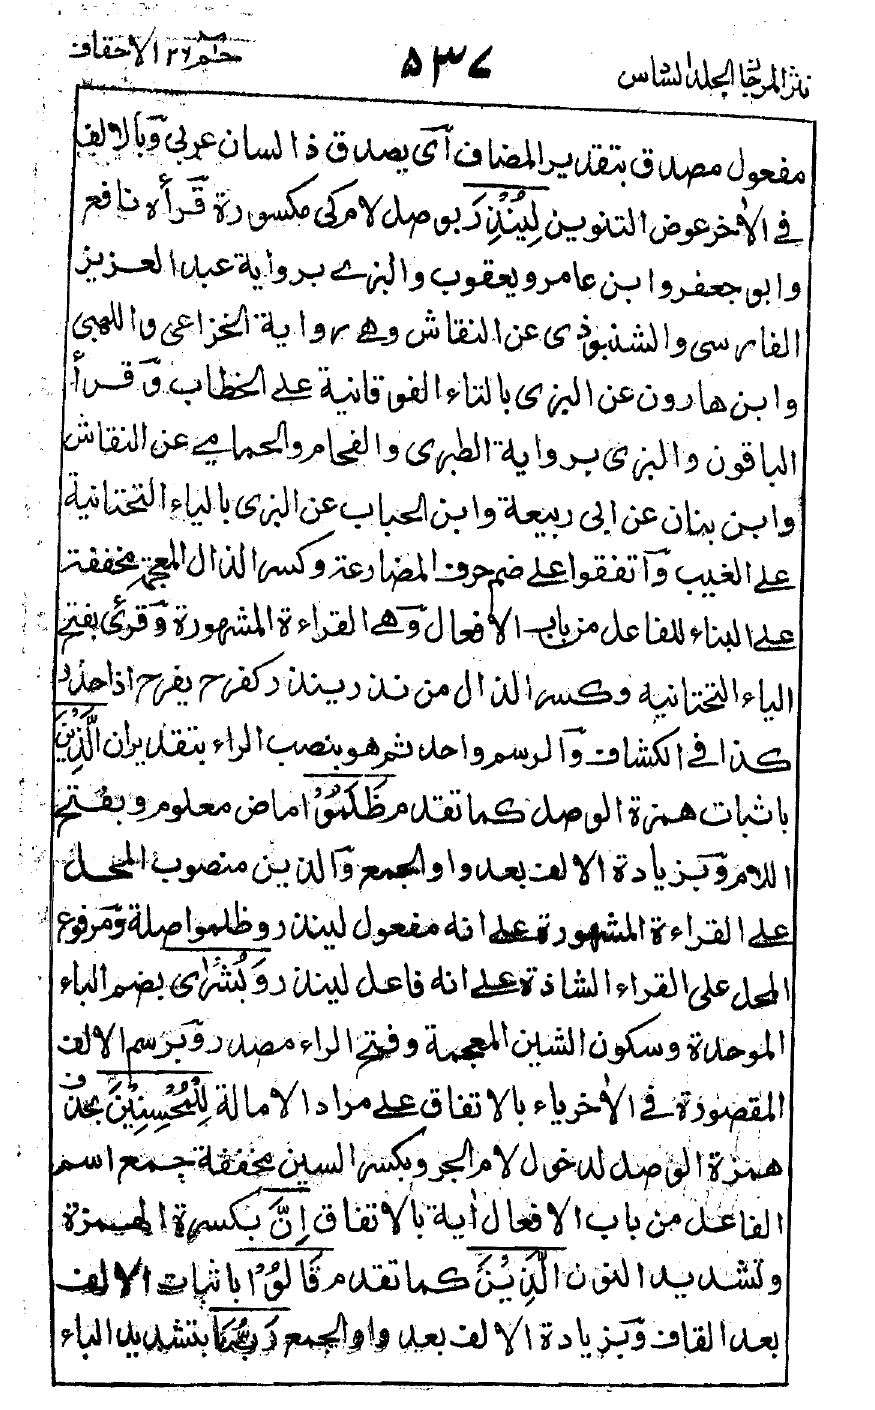 نثر المرجان الجلد السادس
٥٣٧
حٰم ٢٦ الاحقاف
مفعول مصدق بتقدير المضاف اى يصدق ذا لسان عربى وبالالف
فى الاٰخر عوض التنوين لِيُنْذِرَ بوصل لام كى مكسورة قرأه نافع
وابو جعفر وابن عامر ويعقوب والبزى برواية عبد العزيز
الفارسى والشنبوذى عن النقاش وهى رواية الخزاعى واللهبى
وابن هارون عن البزى بالتاء الفوقانية على الخطاب وقرأ
الباقون والبزى برواية الطبرى والفحام والحمامى عن النقاش
وابن بنان عن ابى ربيعة وابن الحباب عن البزى بالياء التحتانية
على الغيب واتفقوا على ضم حرف المضارعة وكسر الذال المعجمة مخففة
على البناء للفاعل من باب الافعال وهى القراءة المشهورة وقرئ بفتح
الياء التحتانية وكسر الذال من نذر ينذر كفرح يفرح اذا حذر
كذا فى الكشاف والرسم واحد ثم هو بنصب الراء بتقدير ان الَّذِيْنَ
باثبات همزة الوصل كما تقدم ظَلَمُوْا ماض معلوم وبفتح
اللام وبزيادة الالف بعد واو الجمع والذين منصوب المحل
على القراءة المشهورة على انه مفعول لينذر وظلموا صلة ومرفوع
المحل على القراء الشاذة على انه فاعل لينذر وَبُشْرٰى بضم الباء
الموحدة وسكون الشين المعجمة وفتح الراء مصدر وبرسم الالف
المقصورة فى الاٰخر ياء بالاتفاق على مراد الامالة لِلْمُحْسِنِيْنَ بحذف
همزة الوصل لدخول لام الجر وبكسر السين مخففة جمع اسم
الفاعل من باب الافعال اٰية بالاتفاق اِنَّ بكسرة الهمزة
وتشديد النون الَّذِيْنَ كما تقدم قَالُوْا باثبات الالف
بعد القاف وبزيادة الالف بعد واو الجمع رَبُّنَا بتشديد الباء